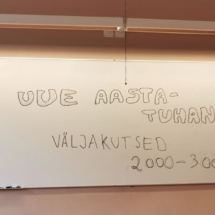 UUE AASTA-
TUHAN
VÄLJAKUTSED
2000-300